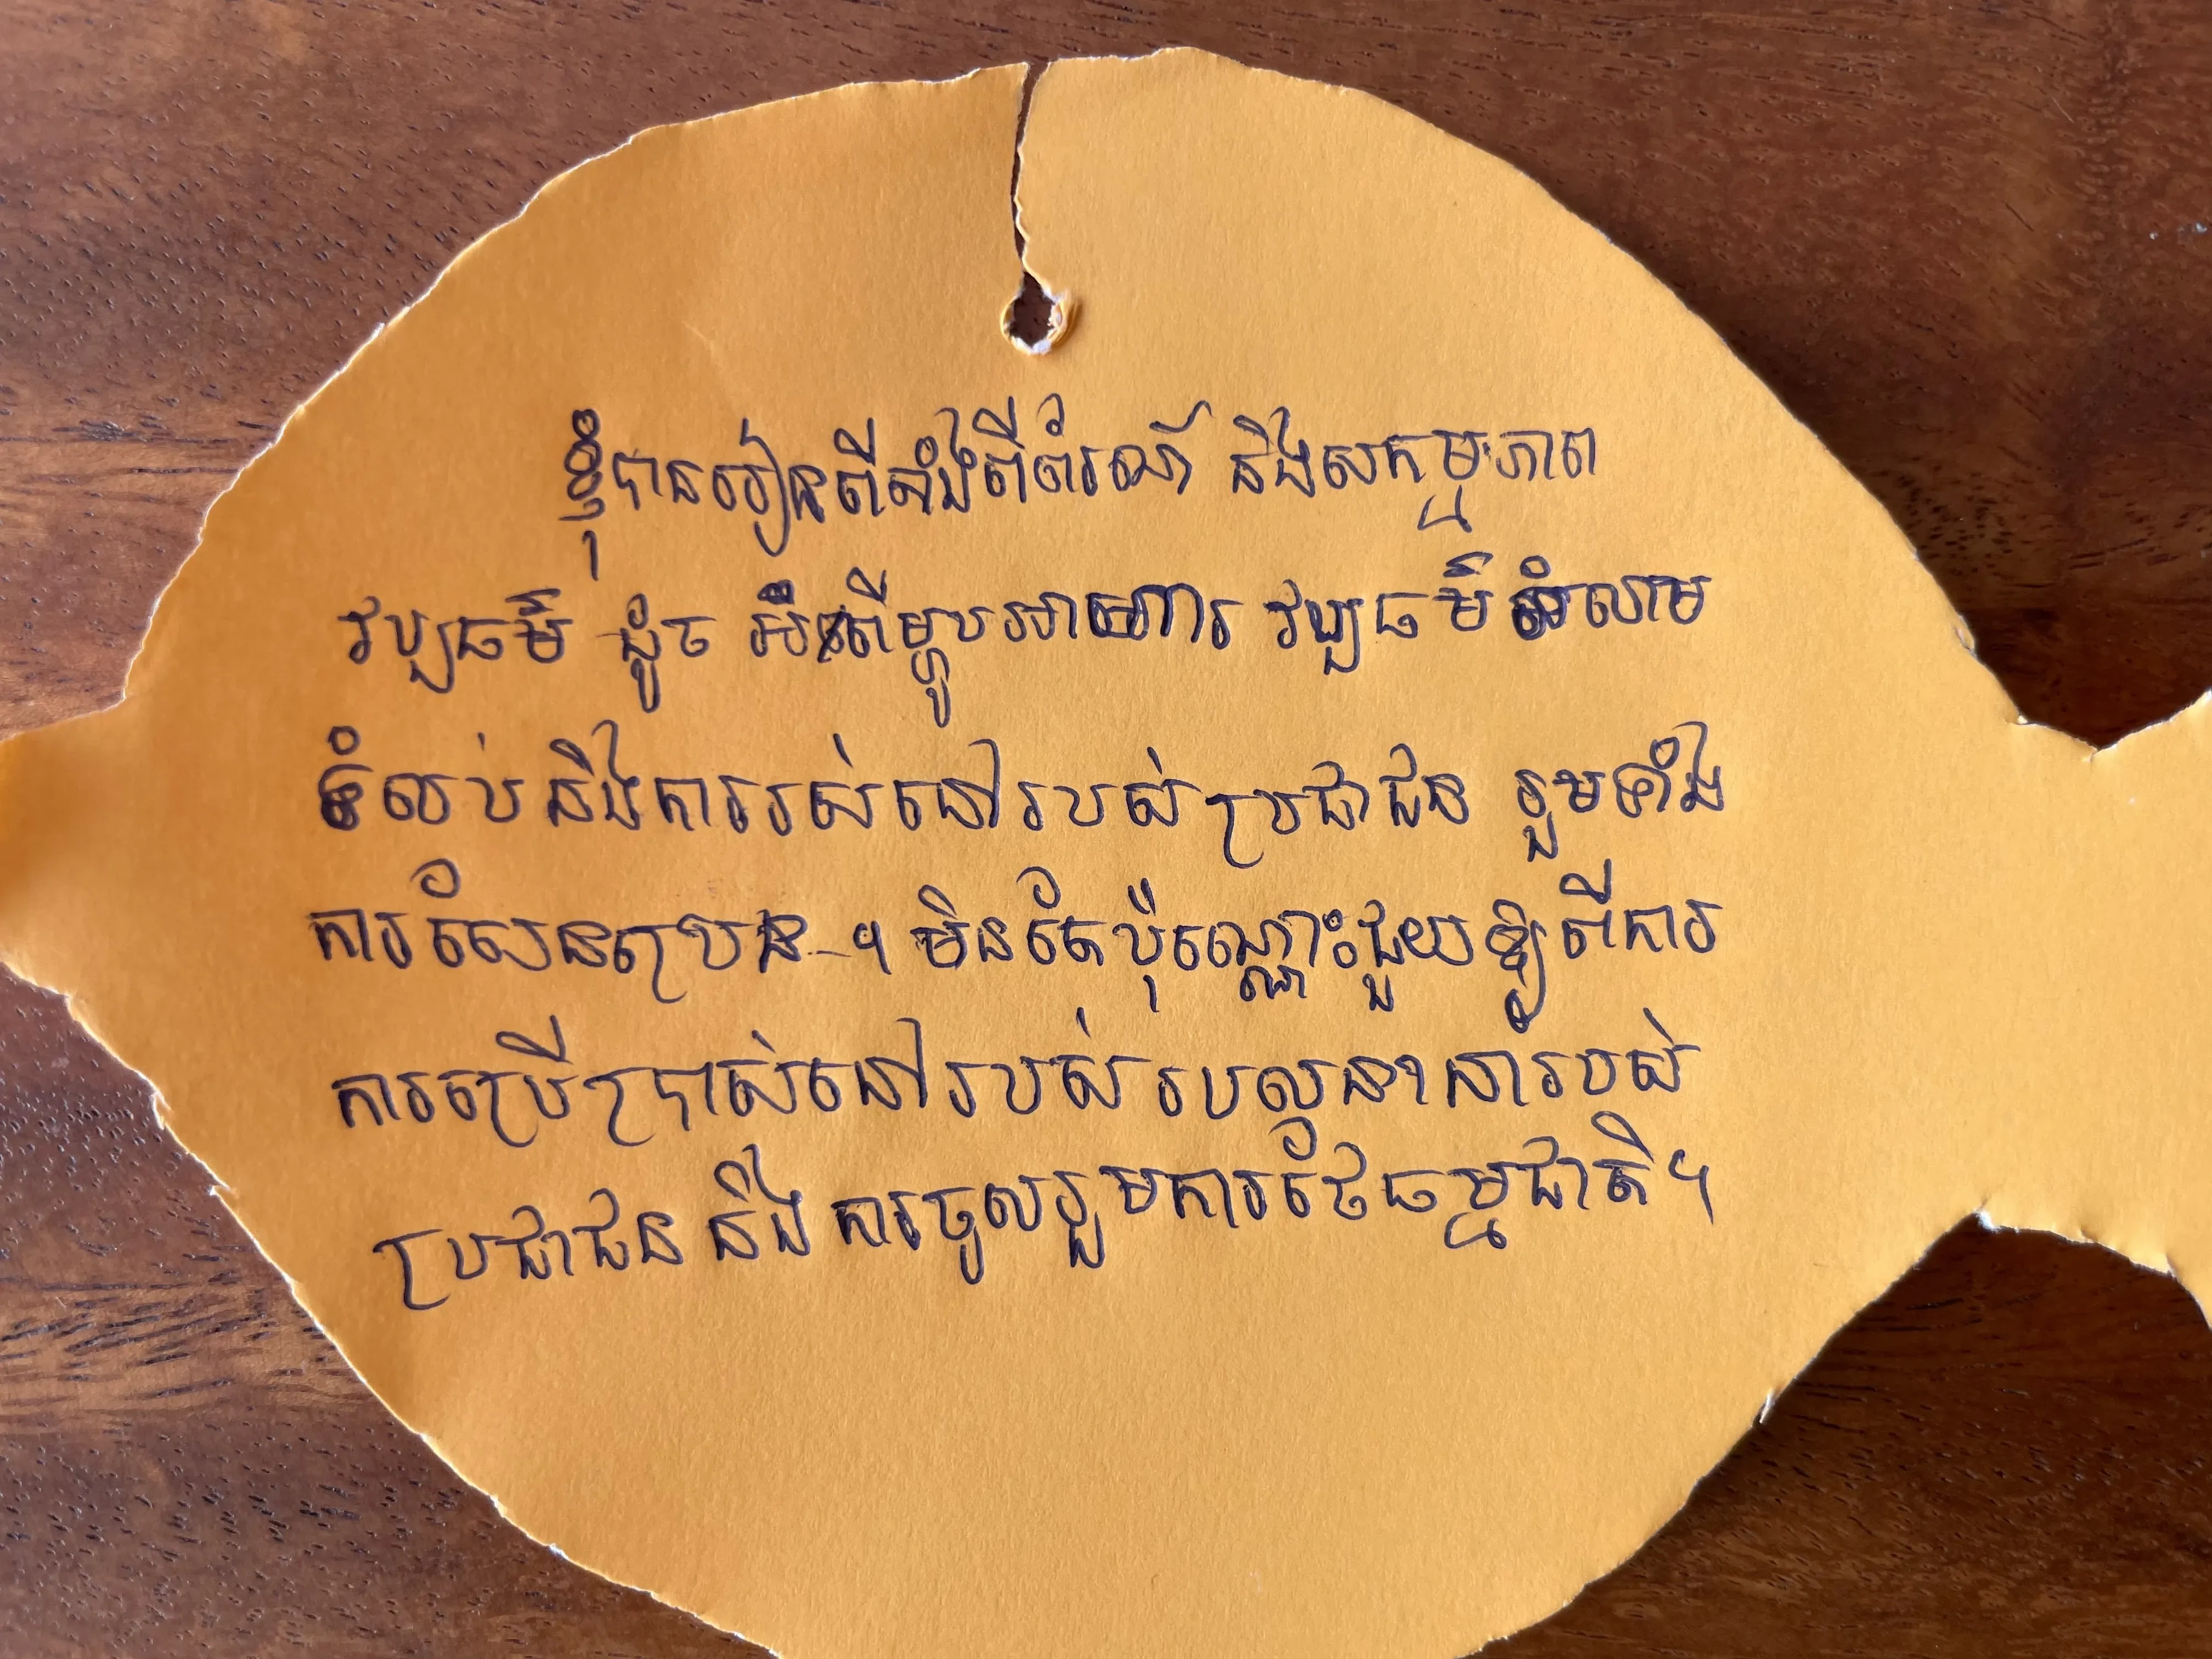 ខ្ញុំបានរៀនពីតាំងពីព័រណ៍ និងសកម្មភាព
វប្បធម៌ ដូច ពីម្ហូបអាហារ វប្បធម៌អំលាម
ទំលាប់ និងការរស់នៅរបស់ប្រជាជន រួមទាំង
ការសែនព្រេន ។ មិនតែប៉ុណ្ណោះជួយឱ្យពីការ
ការប្រើប្រាស់នៅរបស់របល្មនានារបស់
ប្រជាជន និងការចូលរួមការថែធម្មជាតិ។